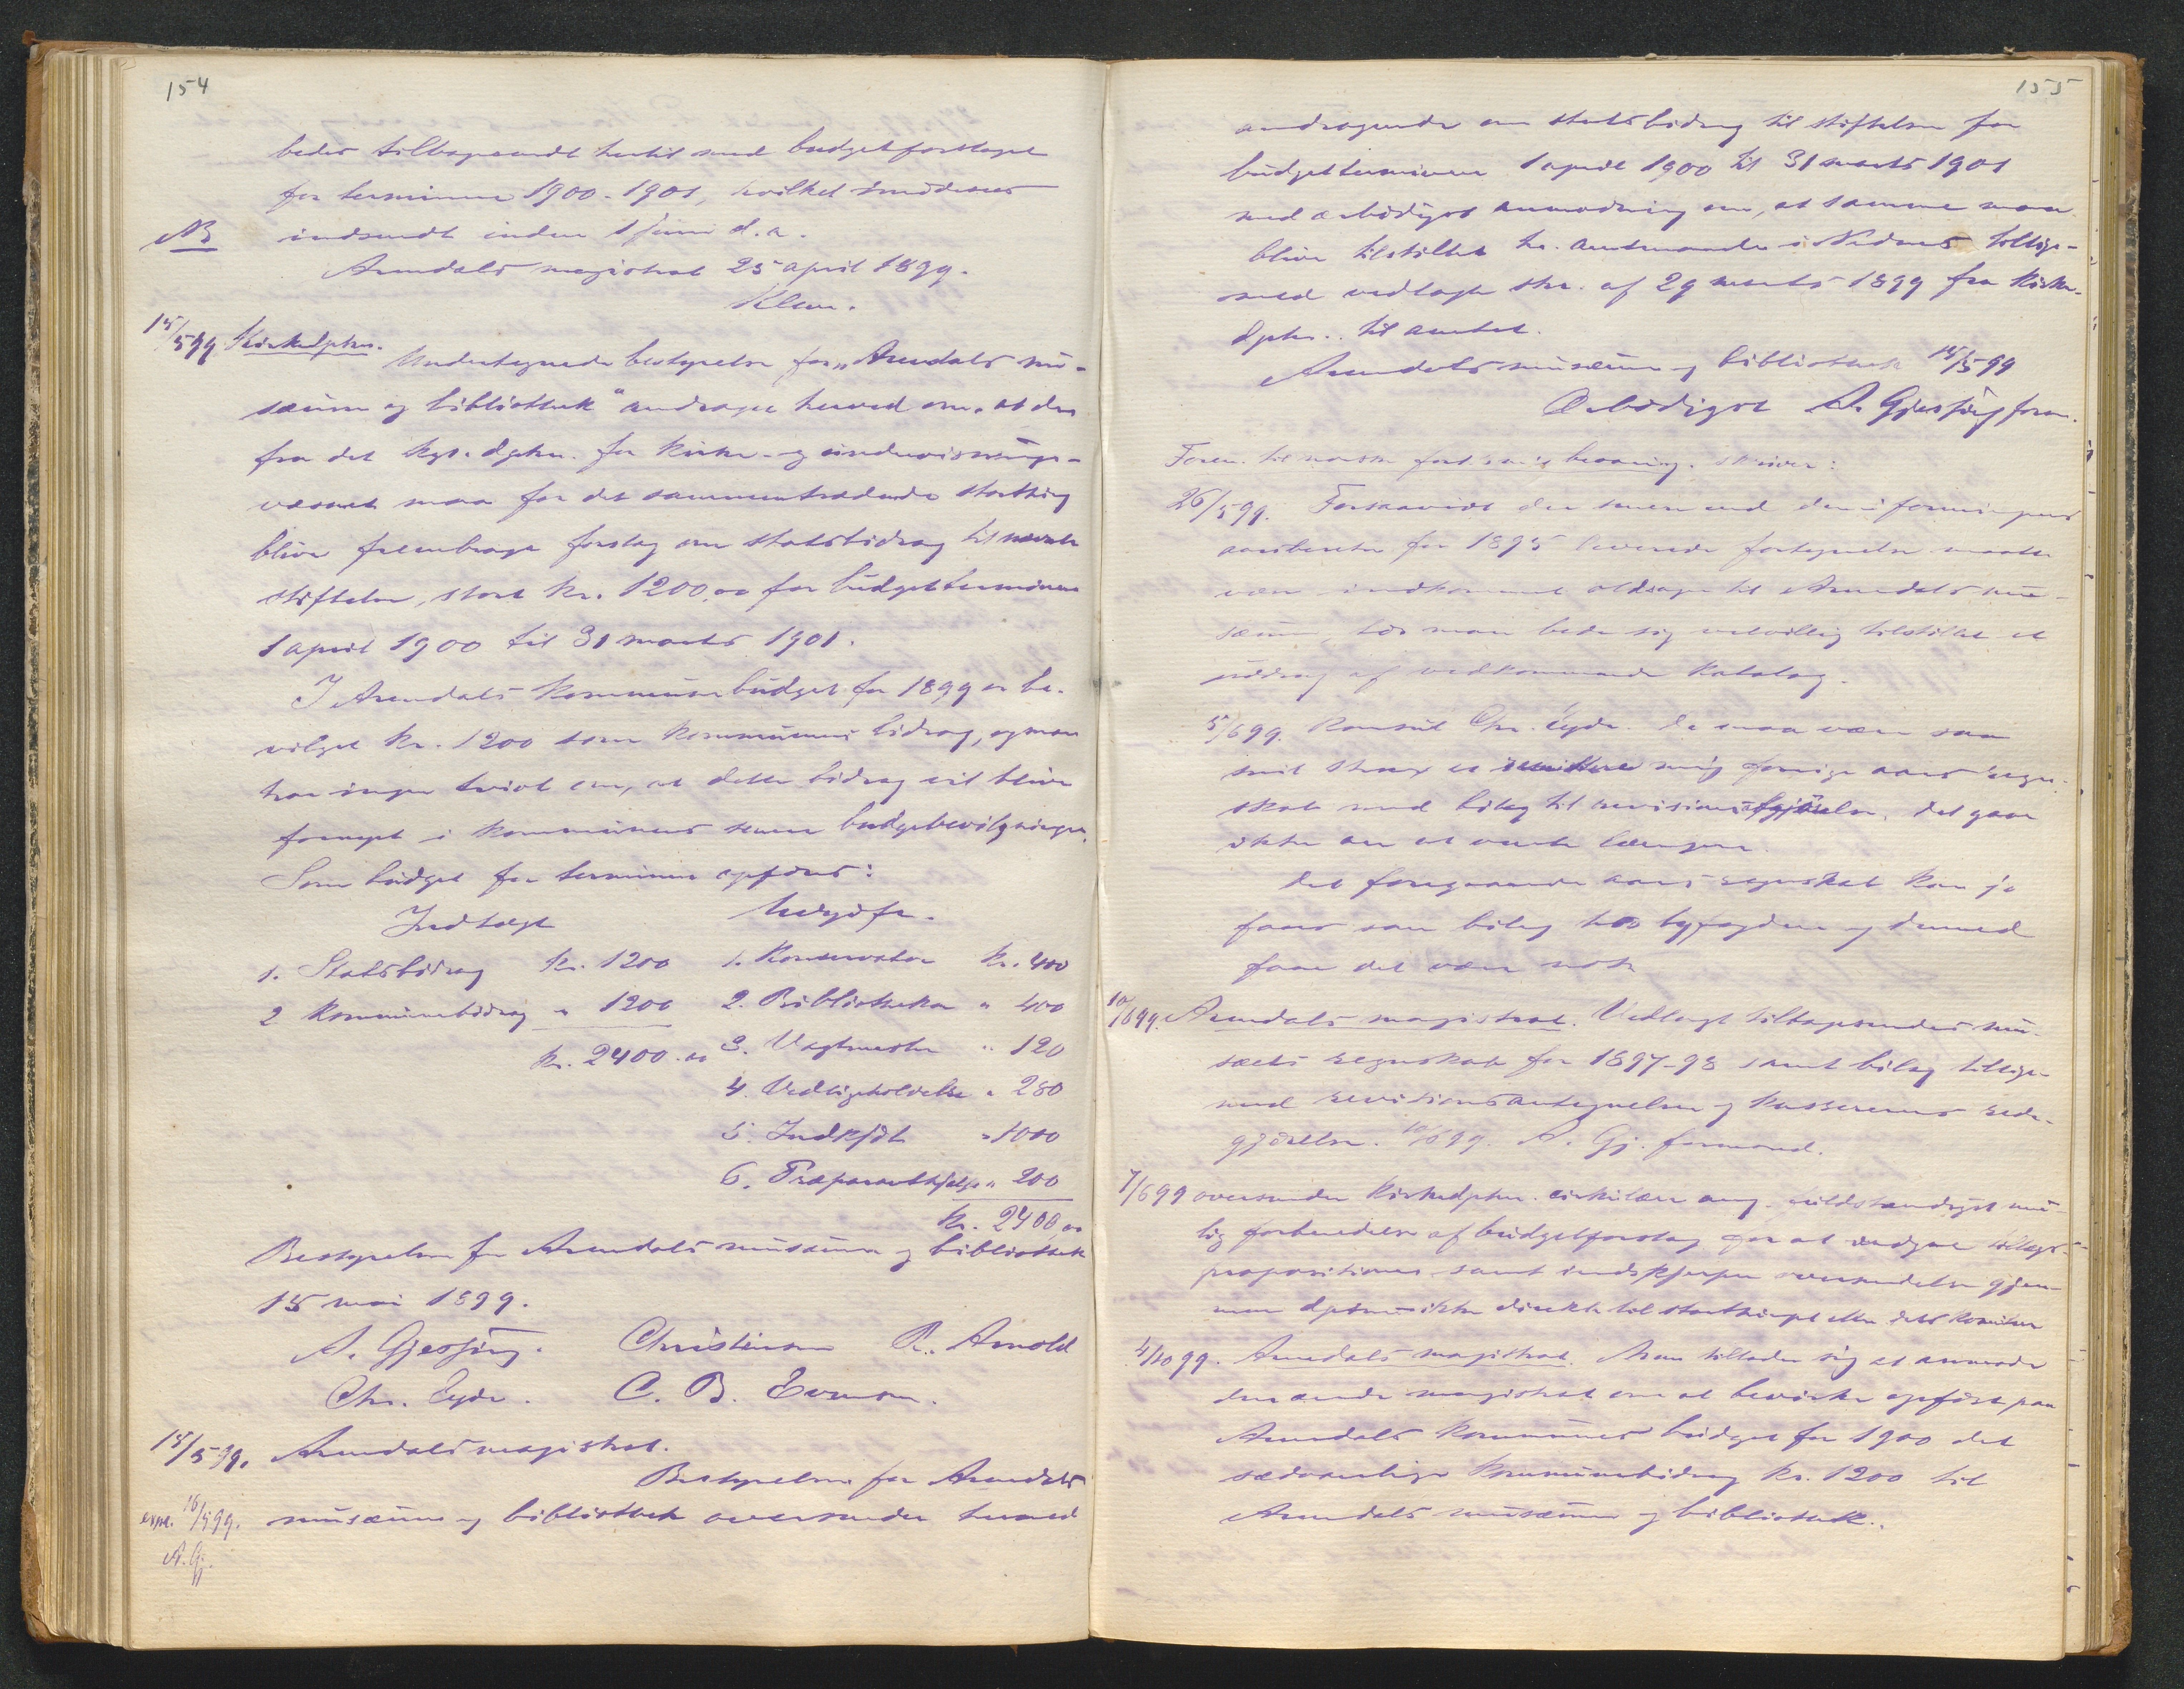 154
bedes tilbagesendt hertil med budgetforslaget
for terminen 1900-1901, hvilket imødesees
NB indsendt inden 1 juni d.a.
Arendals magistrat 25 april 1899.
Klem.
15/5 99 Kirkedpten.
Undertegnede bestyrelse for „Arendals mu-
sæum og bibliothek" andrager herved om, at der
fra det kgl. dpten. for kirke- og undervisnings-
væsenet maa for det sammentrædende storthing
blive frembragt forslag om statsbidrag til nævnte
stiftelse, stort kr. 1200,00 for budgetterminen
1 april 1900 til 31 marts 1901.
I Arendals kommunebudget for 1899 er be-
vilget kr. 1200 som kommunens bidrag, og man
har ingen tvivl om, at dette bidrag vil blive
fornyet i kommunens senere budgetbevilgninger.
Som budget for terminen opføres:
Indtægt Udgift.
1. Statsbidrag kr. 1200 1. Konservator kr. 400
2 Kommunebidrag " 1200 2. Bibliothekar " 400
kr. 2400.00 3. Vagtmester " 120
4. Vedligeholdelse " 280
5. Indkjøb " 1000
6. Præparanthjælp " 200
kr. 2400,00
Bestyrelsen for Arendals musæum og bibliothek
15 mai 1899.
A. Gjessing. Christensen R. Arnold
Chr. Eyde. C. B. Evensen.
15/5 99. Arendals magistrat.
Bestyrelsen for Arendals
exp. 16/5 99. musæum og bibliothek oversender herved
A. Gj.
155
andragende om statsbidrag til stiftelsen for
budgetterminen 1 april 1900 til 31 marts 1901
med ærbødigst anmodning om, at samme maa
blive tilstillet hr. amtmanden i Nedenes tillige-
med vedlagte skr. af 29 marts 1899 fra kirke-
dpten. til amtet.
Arendals musæum og bibliothek 15/5 99
Ærbødigst A. Gjessing form.
Foren. til norske fort. m. bevaring. skriver:
26/5 99. Forsaavidt der senere end den i foreningens
aarsberetn. for 1895 leverede fortegnelse maatte
være indkommet oldsager til Arendals mu-
sæum, tør man bede sig velvillig tilstillet et
uddrag af vedkommende katalog.
5/6 99. Konsul Chr. Eyde. De maa være saa
snil strax at remittere mig forrige aars regn-
skab med bilag til revisionsafgjørelse, det gaar
ikke an at vente længere.
Det foregaaende aars regnskab kan jo
faaes som bilag hos byfogden og dermed
faar det være nok
10/6 99. Arendals magistrat. Vedlagt tilbagesendes mu-
sæets regnskab for 1897-98 samt bilag tillige-
med revisionsantegnelser og kassererens rede-
gjørelse. 10/6 99. A. Gj. formand.
7/6 99 oversender kirkedpten. cirkulære ang. fuldstændigst mu-
lig forberedelse af budgetforslag for at undgaa tillægs-
propositioner samt indskjerper oversendelse gjen-
nem dptmt ikke direkte til storthinget eller dets komiteer
4/10 99. Arendals magistrat. Man tillader sig at anmode
den ærede magistrat om at bevirke opført paa
Arendals kommunes budget for 1900 det
sædvanlige kommunebidrag kr. 1200 til
Arendals musæum og bibliothek.